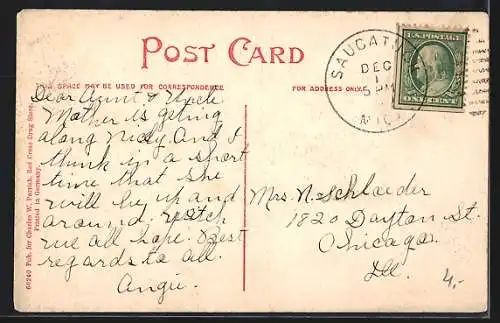 POST CARD
THIS SPACE MAY BE USED FOR CORRESPONDENCE
FOR ADDRESS ONLY.
Dear Aunt & Uncle
Mother is getting
along nicely. And I
think in a short
time that she
will be up and
around. 
we all hope. Best
regards to all.
Angie.
60240 Pub. for Charles W. Parrish, Red Cross Drug Store.
Printed in Germany.
SAUGATUCK
DEC
1
5 PM
MICH
U.S. POSTAGE
ONE CENT
Mrs. N. Schlaeder
1820 Dayton St.
Chicago.
Ill.
4,-